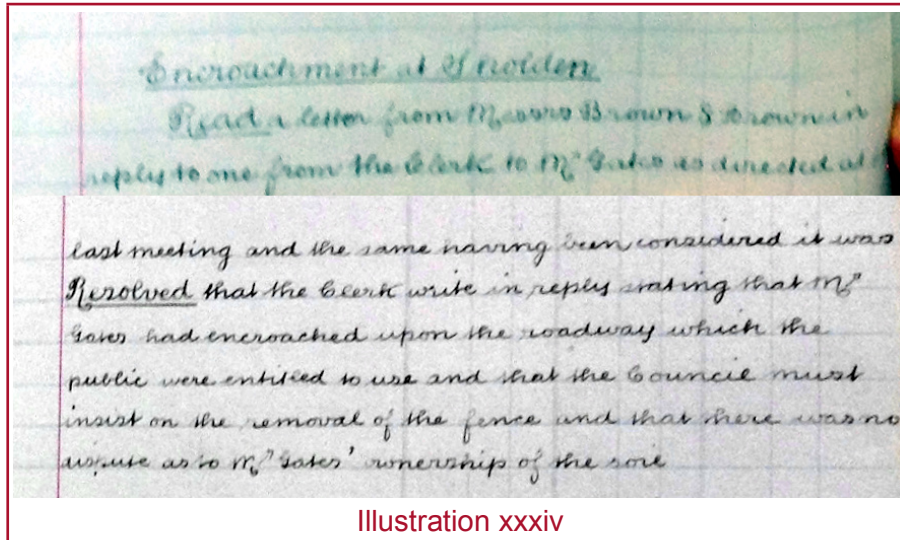 Encroachment at Gnolden
Read a letter from Messrs Brown & Brown in
reply to one from the Clerk to Mr Gates as directed at
last meeting and the same having been considered it was
Resolved that the Clerk write in reply stating that Mr
Gates had encroached upon the roadway which the
public were entitled to use and that the Council must
insist on the removal of the fence and that there was no
dispute as to Mr Gates' ownership of the soil
Illustration xxxiv